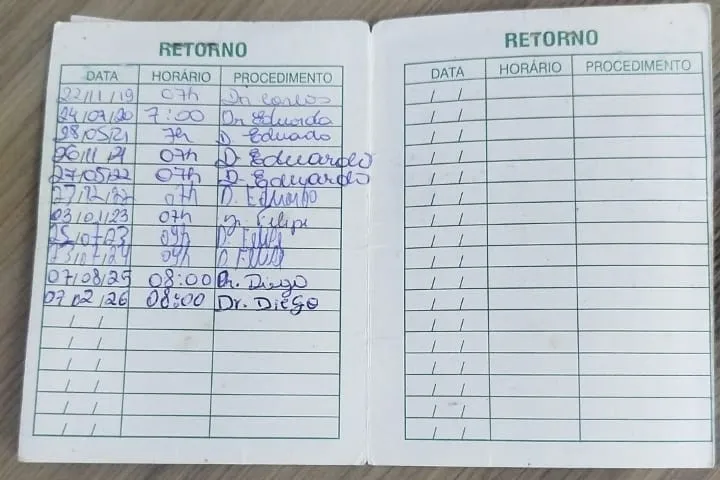 RETORNO
DATA HORÁRIO PROCEDIMENTO
22/11/19 07h Dr Carlos
24/07/20 7:00 Dr Eduardo
28/05/21 7h D. Eduardo
26/11/21 07h D. Eduardo
27/05/22 07h D. Eduardo
07h D. Eduardo
03/01/23 07h Dr. Felipe
25/07/23 09h D.
09h D.
07/08/25 08:00 Dr. Diego
07/02/26 08:00 Dr. Diego
RETORNO
DATA HORÁRIO PROCEDIMENTO